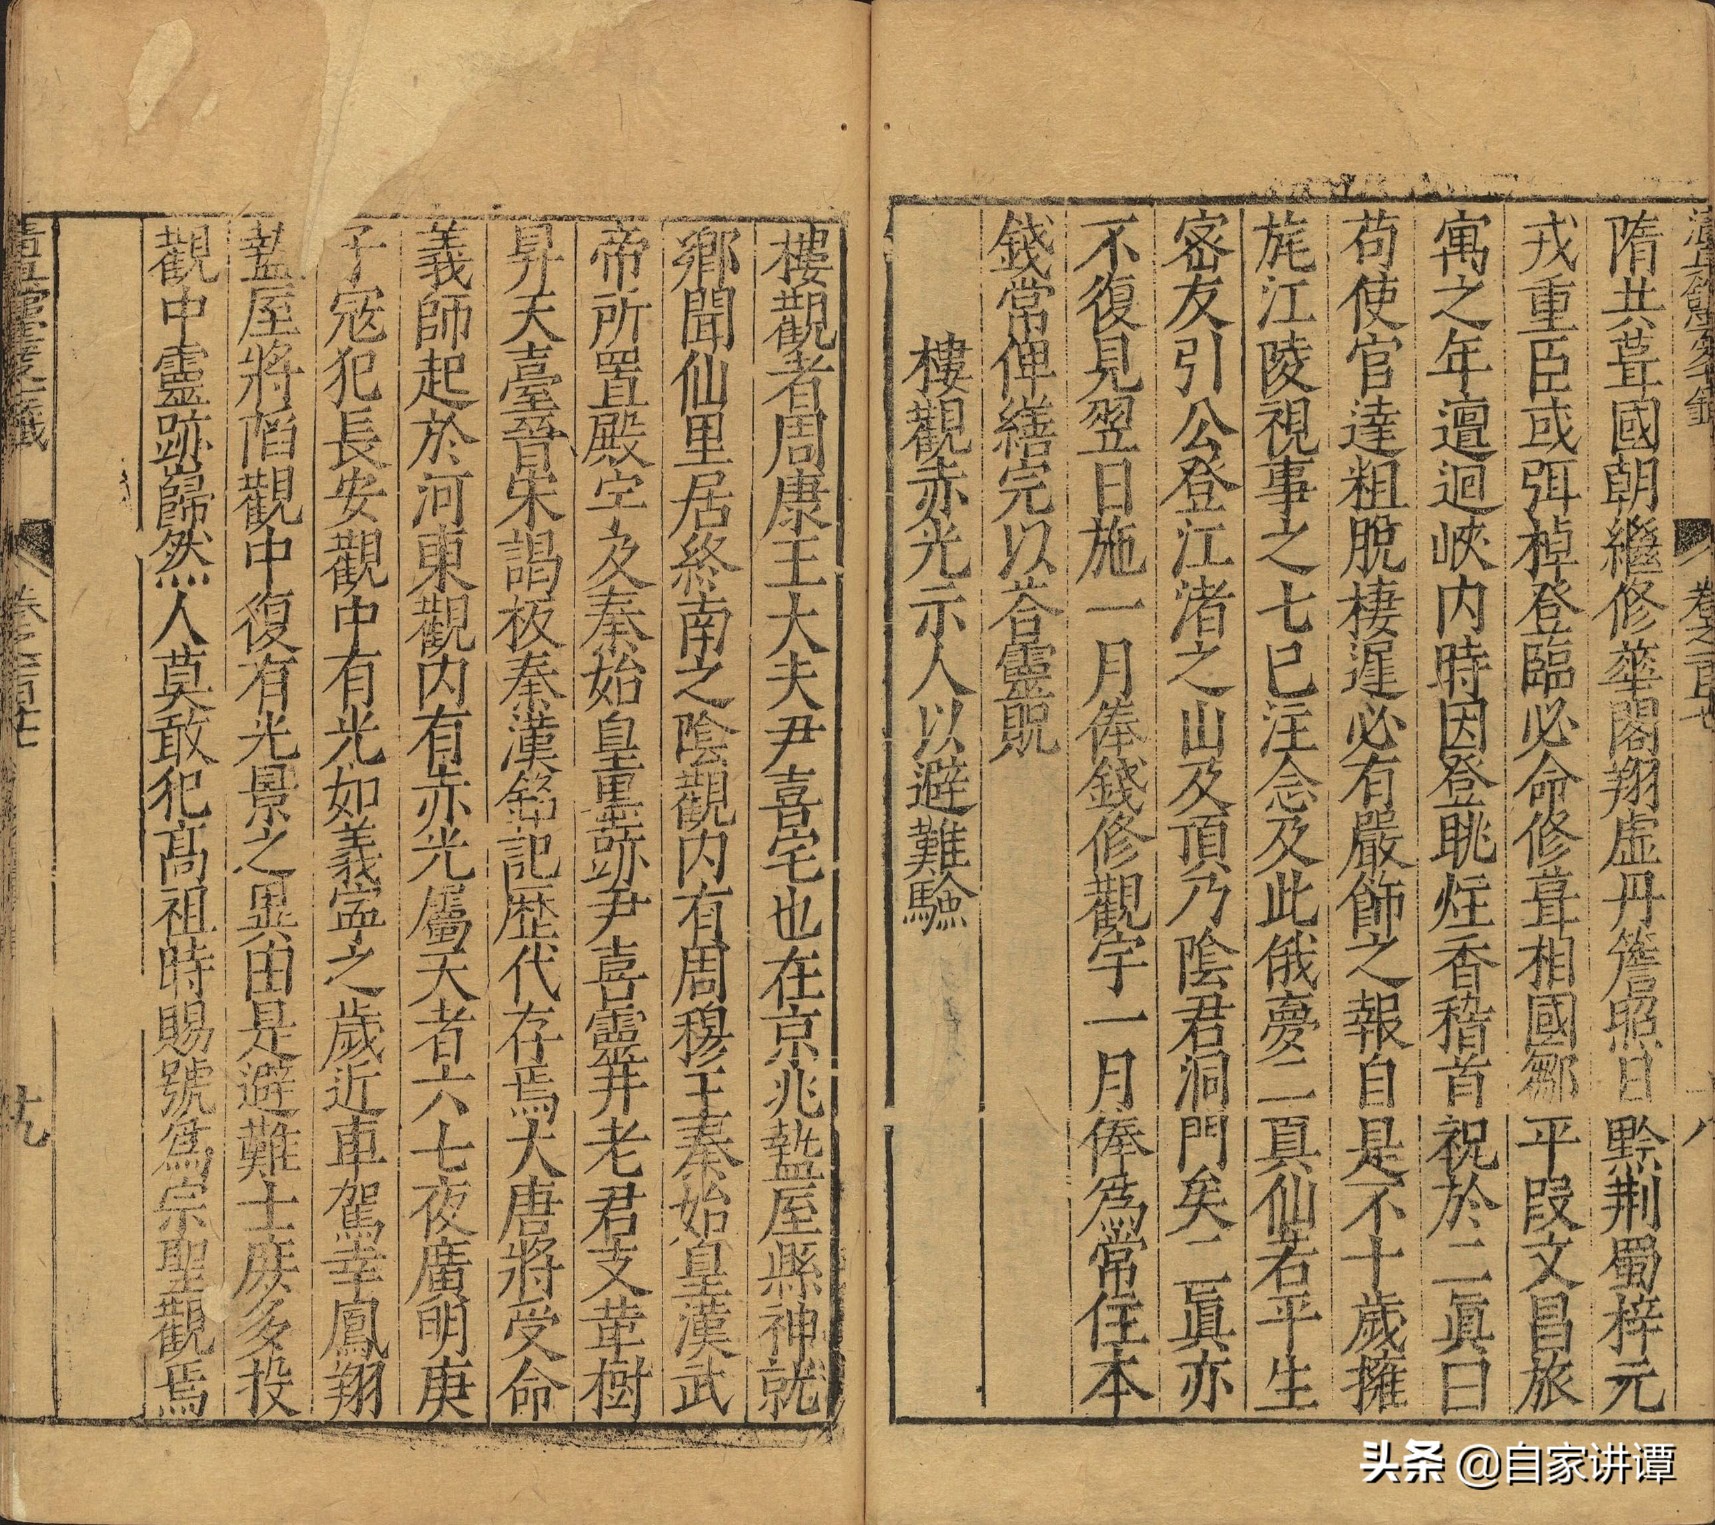 隋共葺國朝繼修華閣翔虛丹簷照日黔荆蜀梓元
戎重臣或弭棹登臨必命修葺相國鄒平段文昌旅
寓之年邅迴峽内時因登眺炷香稽首祝於二眞曰
苟使官達粗脫棲遲必有嚴飾之報自是不十歲擁
旄江陵視事之七已注念及此俄夢二眞仙若平生
密友引公登江渚之山及頂乃陰君洞門矣二眞亦
不復見翌日施一月俸錢修觀宇一月俸爲常住本
錢常俾繕完以荅靈貺
樓觀赤光示人以避難驗
樓觀者周康王大夫尹喜宅也在京兆盩厔縣神就
鄉聞仙里居終南之陰觀内有周穆王秦始皇漢武
帝所置殿宇及秦始皇墨跡尹喜靈井老君支葦樹
昇天臺晉宋謁板秦漢銘記歷代存焉大唐將受命
義師起於河東觀内有赤光屬天者六七夜廣明庚
子冦犯長安觀中有光如義寧之歲近車駕幸鳳翔
盩厔將陷觀中復有光景之異由是避難士庶多投
觀中靈跡巋然人莫敢犯髙祖時賜號爲宗聖觀焉
卷之一百廿
头条 @自家讲谭